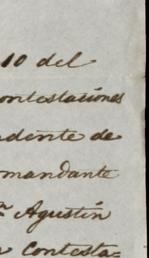 10 del
ontestaciones
ndente de
mandante
n Agustin
n contesta=